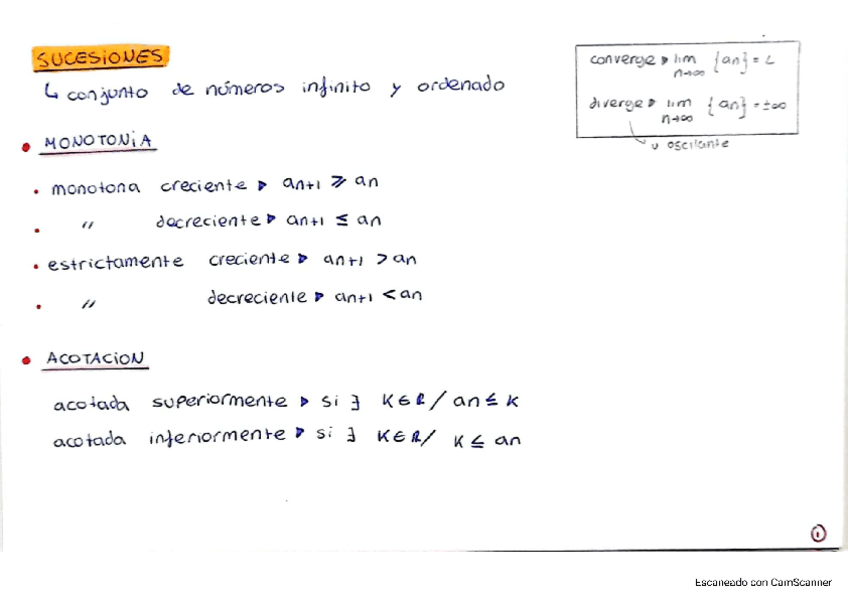 SUCESIONES
↳ conjunto de números infinito y ordenado
converge ▸ lim {an} = L
n→∞
diverge ▸ lim {an} = ±∞
n→∞
↳ u oscilante
• MONOTONiA
• monotona creciente ▸ an+1 ⩾ an
• " decreciente ▸ an+1 ≤ an
• estrictamente creciente ▸ an+1 > an
• " decreciente ▸ an+1 < an
• ACOTACiON
acotada superiormente ▸ si ∃ K∈R/ an ≤ K
acotada inferiormente ▸ si ∃ K∈R/ K ≤ an
1
Escaneado con CamScanner